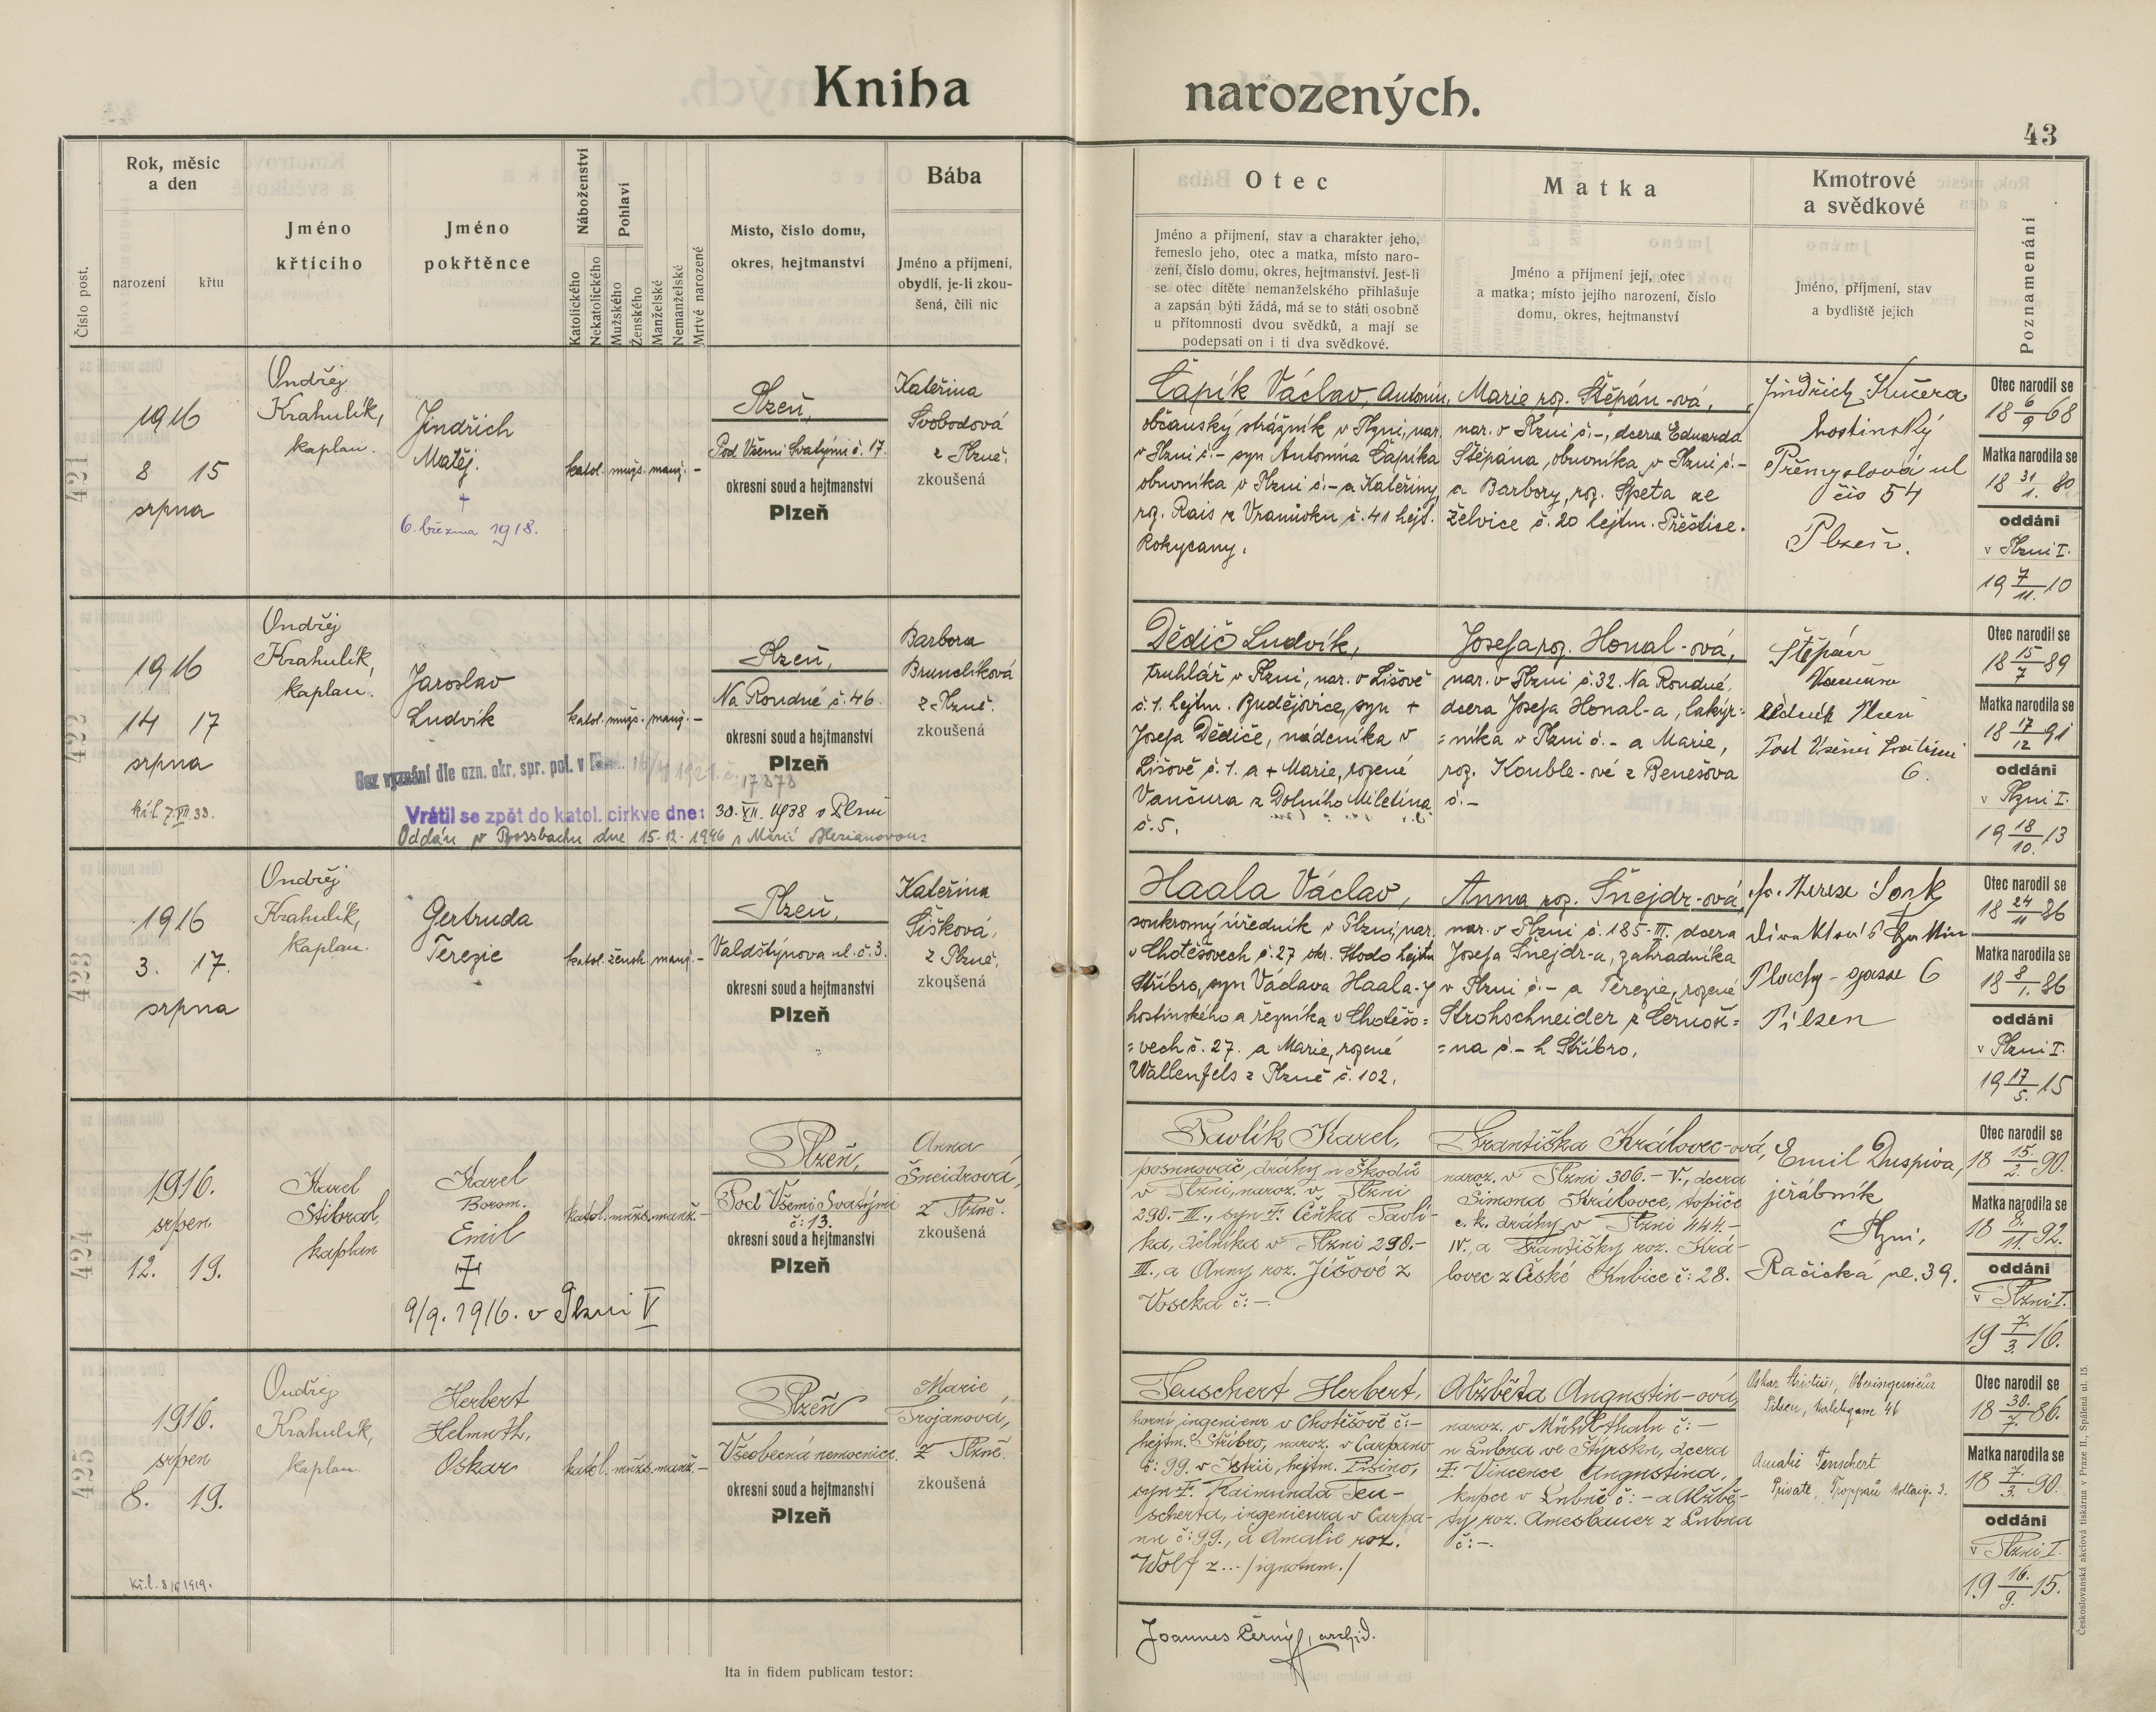 Kniha narozených.
43
Číslo post.
Rok, měsíc
a den
narození
křtu
Jméno
křtícího
Jméno
pokřtěnce
Náboženství
Katolického
Nekatolického
Pohlaví
Mužského
Ženského
Manželské
Nemanželské
Mrtvě narozené
Místo, číslo domu,
okres, hejtmanství
Bába
Jméno a příjmení,
obydlí, je-li zkou-
šená, čili nic
Otec
Jméno a příjmení, stav a charakter jeho,
řemeslo jeho, otec a matka, místo naro-
zení, číslo domu, okres, hejtmanství. Jest-li
se otec dítěte nemanželského přihlašuje
a zapsán býti žádá, má se to státi osobně
u přítomnosti dvou svědků, a mají se
podepsati on i ti dva svědkové.
Matka
Jméno a příjmení její, otec
a matka; místo jejího narození, číslo
domu, okres, hejtmanství
Kmotrové
a svědkové
Jméno, příjmení, stav
a bydliště jejich
Poznamenání
421
1916
8 15
srpna
Ondřej
Krahulík,
kaplan.
Jindřich
Matěj.
+
6. března 1918.
katol. mužs. manž. -
Plzeň,
Pod Všemi Svatými č. 17.
okresní soud a hejtmanství
Plzeň
Kateřina
Svobodová
z Plzně,
zkoušená
Čapík Václav, Antonín,
občanský strážník v Plzni, nar.
v Plzni č.- syn Antonína Čapíka
obuvníka v Plzni č.- a Kateřiny,
roz. Rais z Vranovku č. 41 hejt.
Rokycany.
Marie roz. Štěpán-ová,
nar. v Plzni č.-, dcera Eduarda
Štěpána, obuvníka, v Plzni č.-
a Barbory, roz. Špeta ze
Želvice č. 20 hejtm. Přeštice.
Jindřich Kučera
hostinský
Přemyslová ul
čís 54
Plzeň.
Otec narodil se
18 6/9 68
Matka narodila se
18 31/1. 80
oddáni
v Plzni I.
19 7/11. 10
422
1916
14 17
srpna
kř.l. 7.VII.38.
Ondřej
Krahulík,
kaplan.
Jaroslav
Ludvík
katol. mužs. manž. -
Bez vyznání dle ozn. okr. spr. pol. v
17878
Vrátil se zpět do katol. církve dne: 30. VII. 1938 v Plzni
Oddán v Rossbachu dne 15.12.1946 s Marií
Plzeň,
Na Roudné č. 46.
okresní soud a hejtmanství
Plzeň
Barbora
Brunclíková
z Plzně.
zkoušená
Dědič Ludvík,
truhlář v Plzni, nar. v Lišově
č. 1. hejtm. Budějovice, syn +
Josefa Dědiče, nádeníka v
Lišově č. 1. a + Marie, rozené
Vančura z Dolního Miletína
č. 5.
Josefa roz. Honal-ová,
nar. v Plzni č. 32. Na Roudné,
dcera Josefa Honal-a, lakýr=
=níka v Plzni č.- a Marie,
roz. Kouble-ové z Benešova
č.-
Štěpán
Vančura
úředník Plzeň
Pod Všemi Svatými
6.
Otec narodil se
18 15/7 89
Matka narodila se
18 17/12 91
oddáni
v Plzni I.
19 18/10. 13
423
1916
3. 17.
srpna
Ondřej
Krahulík,
kaplan.
Gertruda
Terezie
katol. žensk. manž. -
Plzeň,
Valdštýnova ul. č. 3.
okresní soud a hejtmanství
Plzeň
Kateřina
Šišková,
z Plzně,
zkoušená
Haala Václav,
soukromý úředník v Plzni, nar.
v Chotěšovech č. 27 okr. Stodo hejtm
Stříbro, syn Václava Haala-y
hostinského a řezníka v Chotěšo=
=vech č. 27. a Marie, rozené
Wallenfels z Plzně č. 102.
Anna roz. Šnejdr-ová,
nar. v Plzni č. 185-III. dcera
Josefa Šnejdr-a, zahradníka
v Plzni č.- a Terezie, rozené
Strohschneider z Černoš=
=na č.- h Stříbro.
Therese
Plachy-gasse 6
Pilsen
Otec narodil se
18 24/11 86
Matka narodila se
18 8/1. 86
oddáni
v Plzni I.
19 17/5. 15
424
1916.
srpen
12. 19.
Karel
Stibral,
kaplan
Karel
Borom.
Emil
9/9. 1916. v Plzni V
katol. mužs. manž. -
Plzeň,
Pod Všemi Svatými
č: 13.
okresní soud a hejtmanství
Plzeň
Anna
Šneidrová,
z Plzně.
zkoušená
Pavlík Karel,
posunovač, dráhy u Škodů
v Plzni, naroz. v Plzni
290.-III., syn +. Čeňka Pavlí-
ka, dělníka v Plzni 290.-
III., a Anny roz. Jíšové z
Voseka č: -.
Františka Královec-ová,
naroz. v Plzni 306.-V., dcera
Šimona Královce, topiče
c. k. dráhy v Plzni 444.-
IV., a Františky roz. Krá-
lovec z České Kubice č: 28.
Emil Duspiva,
jeřábník
v Plzni,
Račická ul. 39.
Otec narodil se
18 15./2. 90.
Matka narodila se
18 8./11. 92.
oddáni
v Plzni I.
19 7./3. 16.
425
1916.
srpen
8. 19.
kř.l. 8/ 1919.
Ondřej
Krahulík,
kaplan.
Herbert
Helmuth,
Oskar
katol. mužs. manž. -
Plzeň
Všeobecná nemocnice.
okresní soud a hejtmanství
Plzeň
Marie
Trojanová,
z Plzně.
zkoušená
Teuschert Herbert,
horní ingenieur v Chotěšově č:-
hejtm. Stříbro, naroz. v Carpano
č: 99. v Istrii, hejtm. Pisino,
syn +. Raimunda Teu-
scherta, ingenieura v Carpa-
nu č: 99., a Amalie roz.
Wolf z... /ignotum./
Alžběta Augustin-ová,
naroz. v Mühlthalu č: -
u Lubna ve Štýrsku, dcera
+. Vincence Augustina,
kupce v Lubně č: - a Alžbě-
ty roz. Amesbauer z Lubna
č: -.
Oberingenieur
Pilsen,
Amalie Teuschert
Private, Troppau
Otec narodil se
18 30./7. 86.
Matka narodila se
18 7./3. 90.
oddáni
v Plzni I.
19 16./9. 15.
Joannes Černý, archid.
Ita in fidem publicam testor:
Českoslovanská akciová tiskárna v Praze II., Spálená ul. 15.